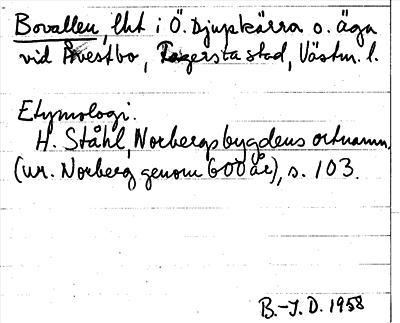 Bovallen, lht i Ö. Djupkärra o. äga
vid Åvestbo, Fagersta stad, Västm. l.
Etymologi.
H. Ståhl, Norbergsbygdens ortnamn,
(ur. Norberg genom 600 år), s. 103.
B.-I. D. 1958